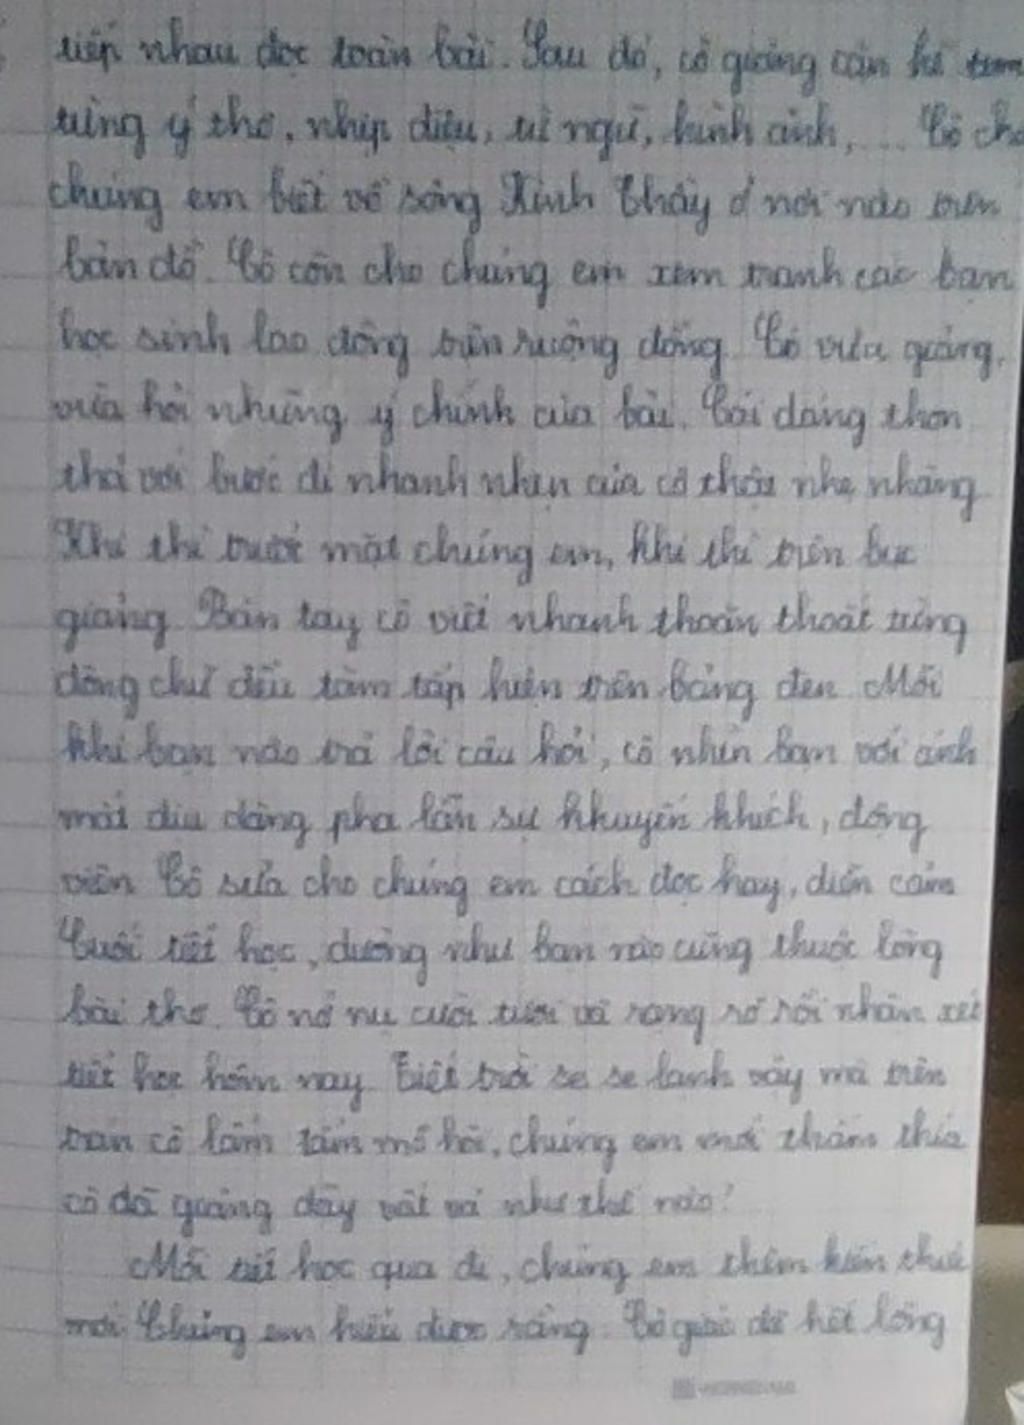 tiếp nhau đọc toàn bài. Sau đó, cô giảng cặn kẽ
từng ý thơ, nhịp điệu, từ ngữ, hình ảnh,... Cô cho
chúng em biết về sông Kinh Thầy ở nơi nào trên
bản đồ. Cô còn cho chúng em xem tranh các bạn
học sinh lao động trên ruộng đồng. Cô vừa giảng,
vừa hỏi những ý chính của bài. Cái dáng thon
thả với bước đi nhanh nhẹn của cô thật nhẹ nhàng
Khi thì trước mặt chúng em, khi thì trên bục
giảng. Bàn tay cô viết nhanh thoăn thoắt từng
dòng chữ đều tăm tắp hiện trên bảng đen. Mỗi
khi bạn nào trả lời câu hỏi, cô nhìn bạn với ánh
mắt dịu dàng pha lẫn sự khuyến khích, động
viên. Cô sửa cho chúng em cách đọc hay, diễn cảm
Cuối tiết học, dường như bạn nào cũng thuộc lòng
bài thơ. Cô nở nụ cười tươi và rạng rỡ rồi nhận xét
tiết học hôm nay. Tiết trời se se lạnh vậy mà trên
trán cô lấm tấm mồ hôi, chúng em mới thấm thía
cô đã giảng dạy vất vả như thế nào!
Mỗi tiết học qua đi, chúng em thêm kiến thức
mới. Chúng em hiểu được rằng: Cô giáo đã hết lòng